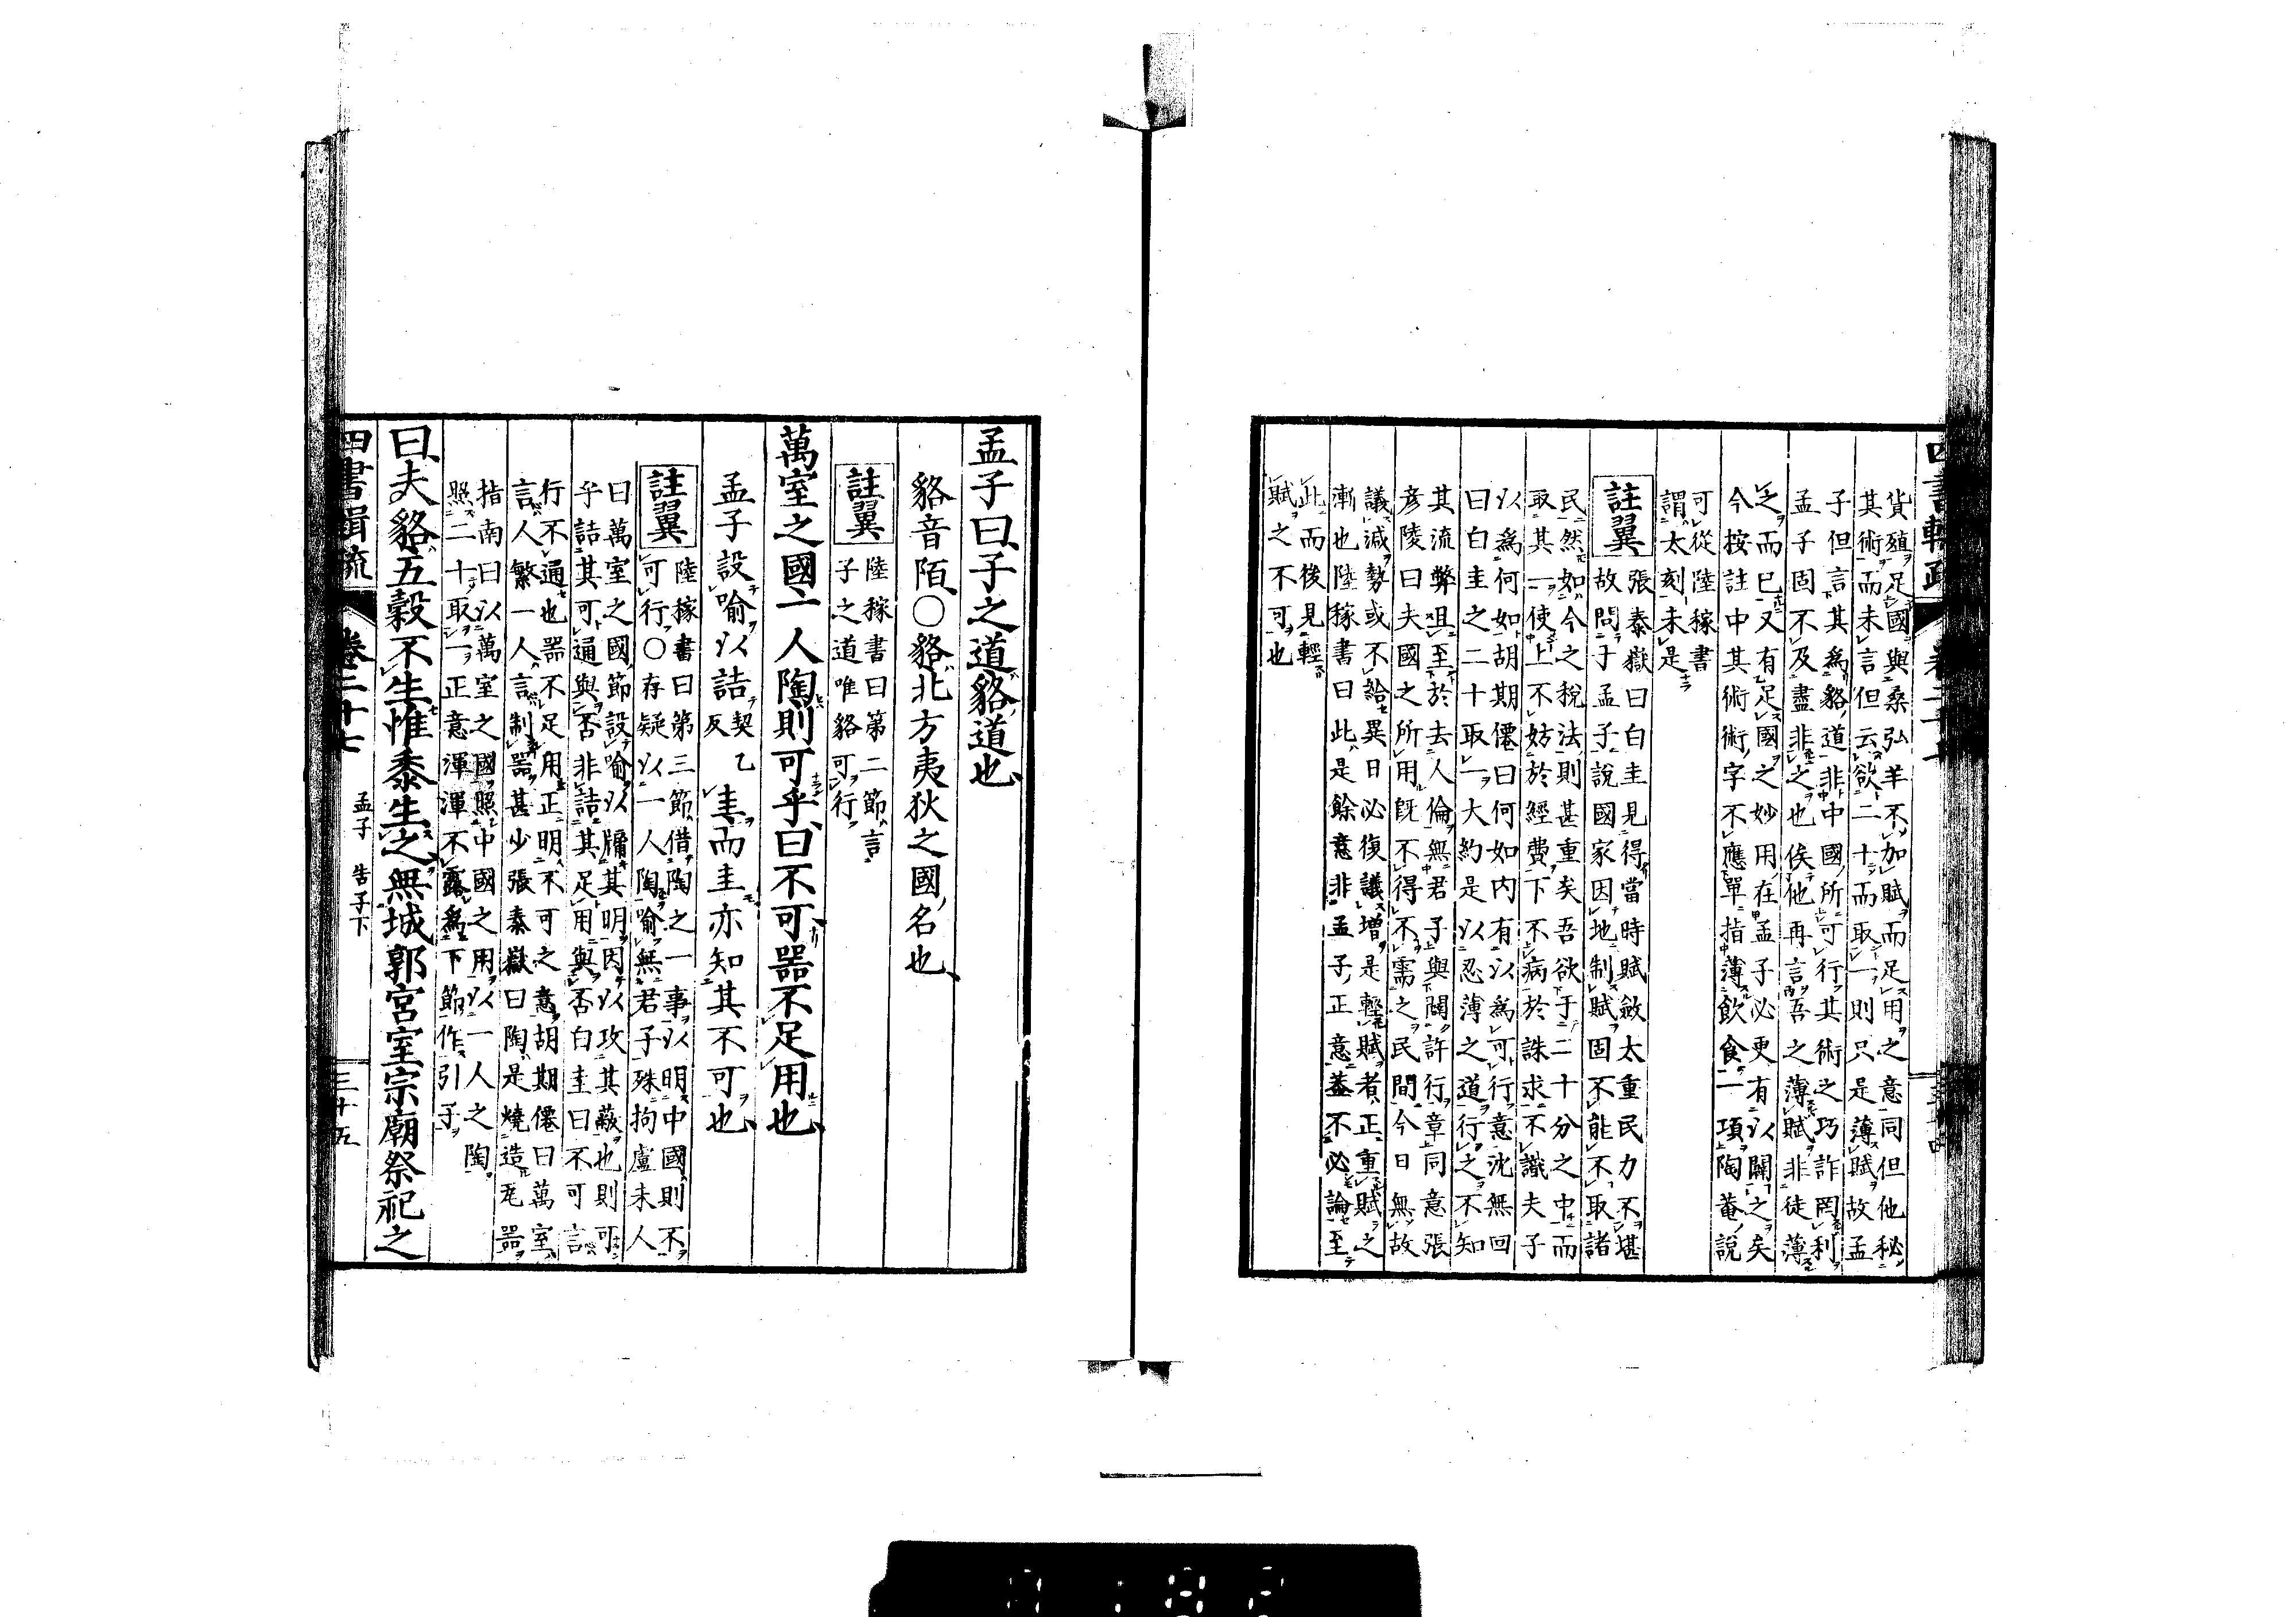 貨殖足國與桑弘羊不加賦而足用之意同但他秘
其術而未言但云欲二十而取一則只是薄賦故孟
子但言其爲貉道非中國所可行其術之巧詐罔利
孟子固不及盡非之也俟他再言吾之薄賦非徒薄
之而已又有足國之妙用在孟子必更有以闢之矣
今按註中其術術字不應單指薄飲食一項陶菴說
可從陸稼書
謂太刻未是
註翼
張泰嶽曰白圭見得當時賦斂太重民力不堪
故問子孟子說國家因地制賦固不能不取諸
民然如今之稅法則甚重矣吾欲于二十分之中而
取其一使上不妨於經費下不病於誅求不識夫子
以爲何如胡期僊曰何如內有以爲可行意沈無回
曰白圭之二十取一大約是以忍薄之道行之不知
其流弊咀至於去人倫無君子與闢許行章同意張
彥陵曰夫國之所用旣不得不需之民間今日無故
議減勢或不給異日必復議增是輕賦者正重賦之
漸也陸稼書曰此是餘意非孟子正意蓋不必論至
此而後見輕
賦之不可也
孟子曰子之道貉道也
貉音陌○貉北方夷狄之國名也
註翼
陸稼書曰第二節言
子之道唯貉可行
萬室之國一人陶則可乎曰不可器不足用也
孟子設喻以詰契乙反圭而圭亦知其不可也
註翼
陸稼書曰第三節借陶之一事以明中國則不
可行○存疑以一人陶喻無君子殊拘盧未人
曰萬室之國節設喻以牖其明因以攻其蔽也則可
乎詰其可通與否非詰其足用與否白圭曰不可言
行不通也器不足用正明不可之意胡期僊曰萬室
言人繁一人言制器甚少張泰嶽曰陶是燒造瓦器
指南曰以萬室之國照中國之用以一人之陶
照二十取一正意渾渾不露爲下節作引子
曰夫貉五穀不生惟黍生之無城郭宮室宗廟祭祀之
四書輯疏 卷二十七 孟子 告子下 三十五